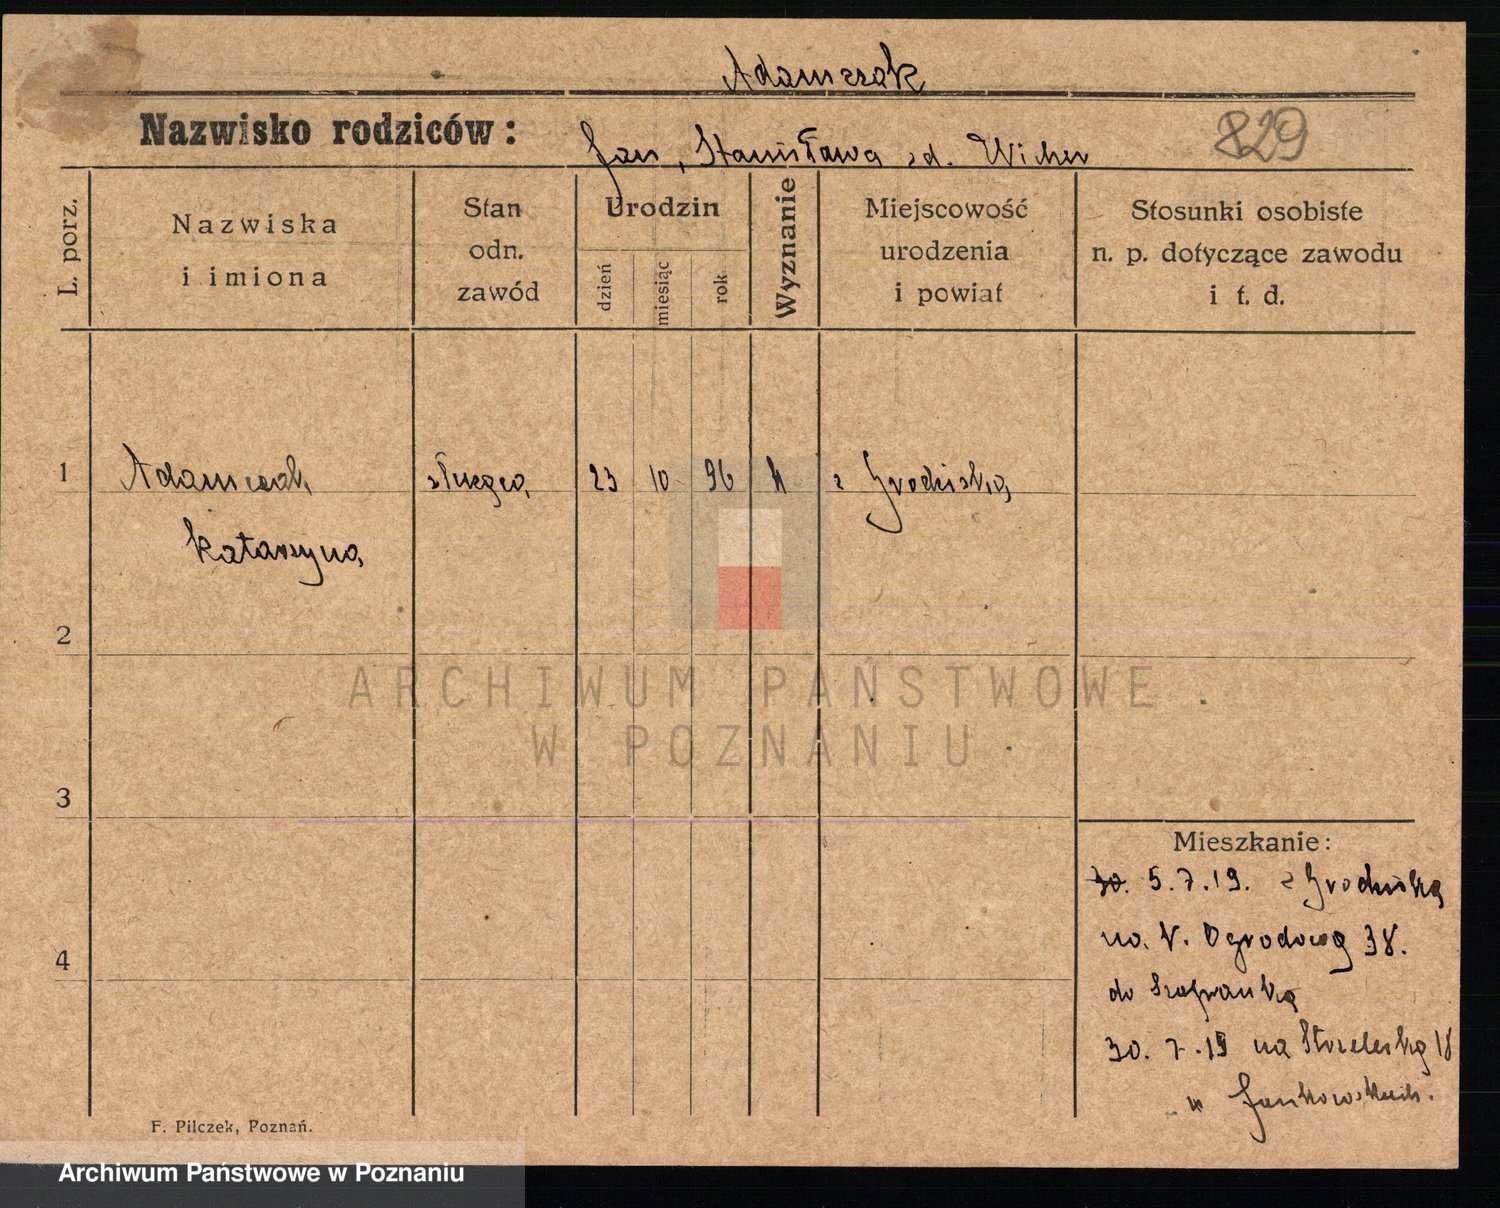 Adamczak
Nazwisko rodziców: Jan, Stanisława zd. Wicher
829
L. porz.
Nazwiska
i imiona
Stan
odn.
zawód
Urodzin
dzień
miesiąc
rok
Wyznanie
Miejscowość
urodzenia
i powiat
Stosunki osobiste
n. p. dotyczące zawodu
i t. d.
1 Adamczak służąca 23 10 96 k z Grodziska
Katarzyna
2
3
4
Mieszkanie:
30. 5.7.19. z Grodziska
na V. Ogrodową 38.
do Szafranka
30.7.19 na Strzelecką 18
F. Pilczek, Poznań.
ARCHIWUM PAŃSTWOWE
W POZNANIU
Archiwum Państwowe w Poznaniu